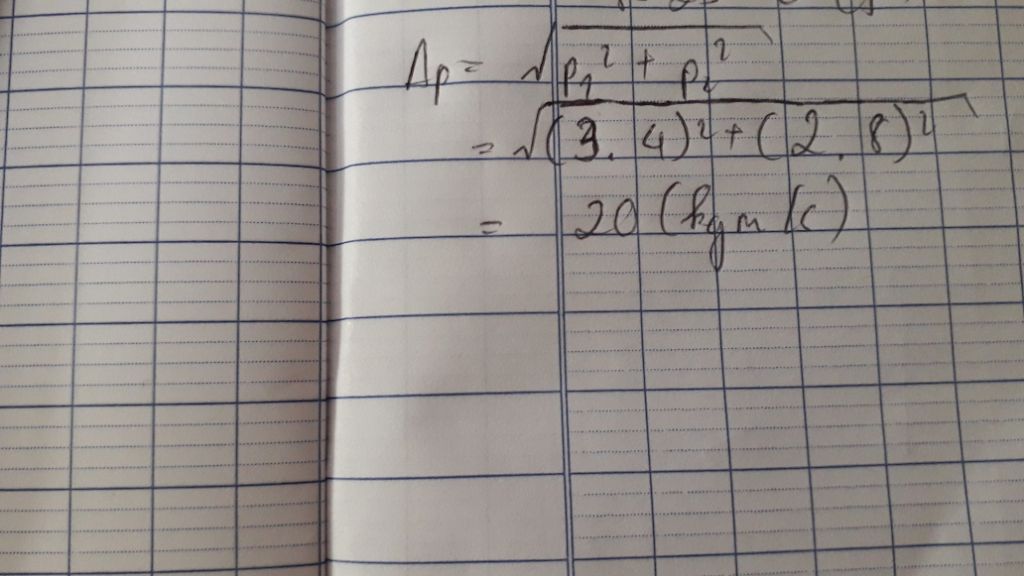 Δp = √(p₁² + p₂²)
= √((3.4)² + (2.8)²)
= 20 (kgm/s)